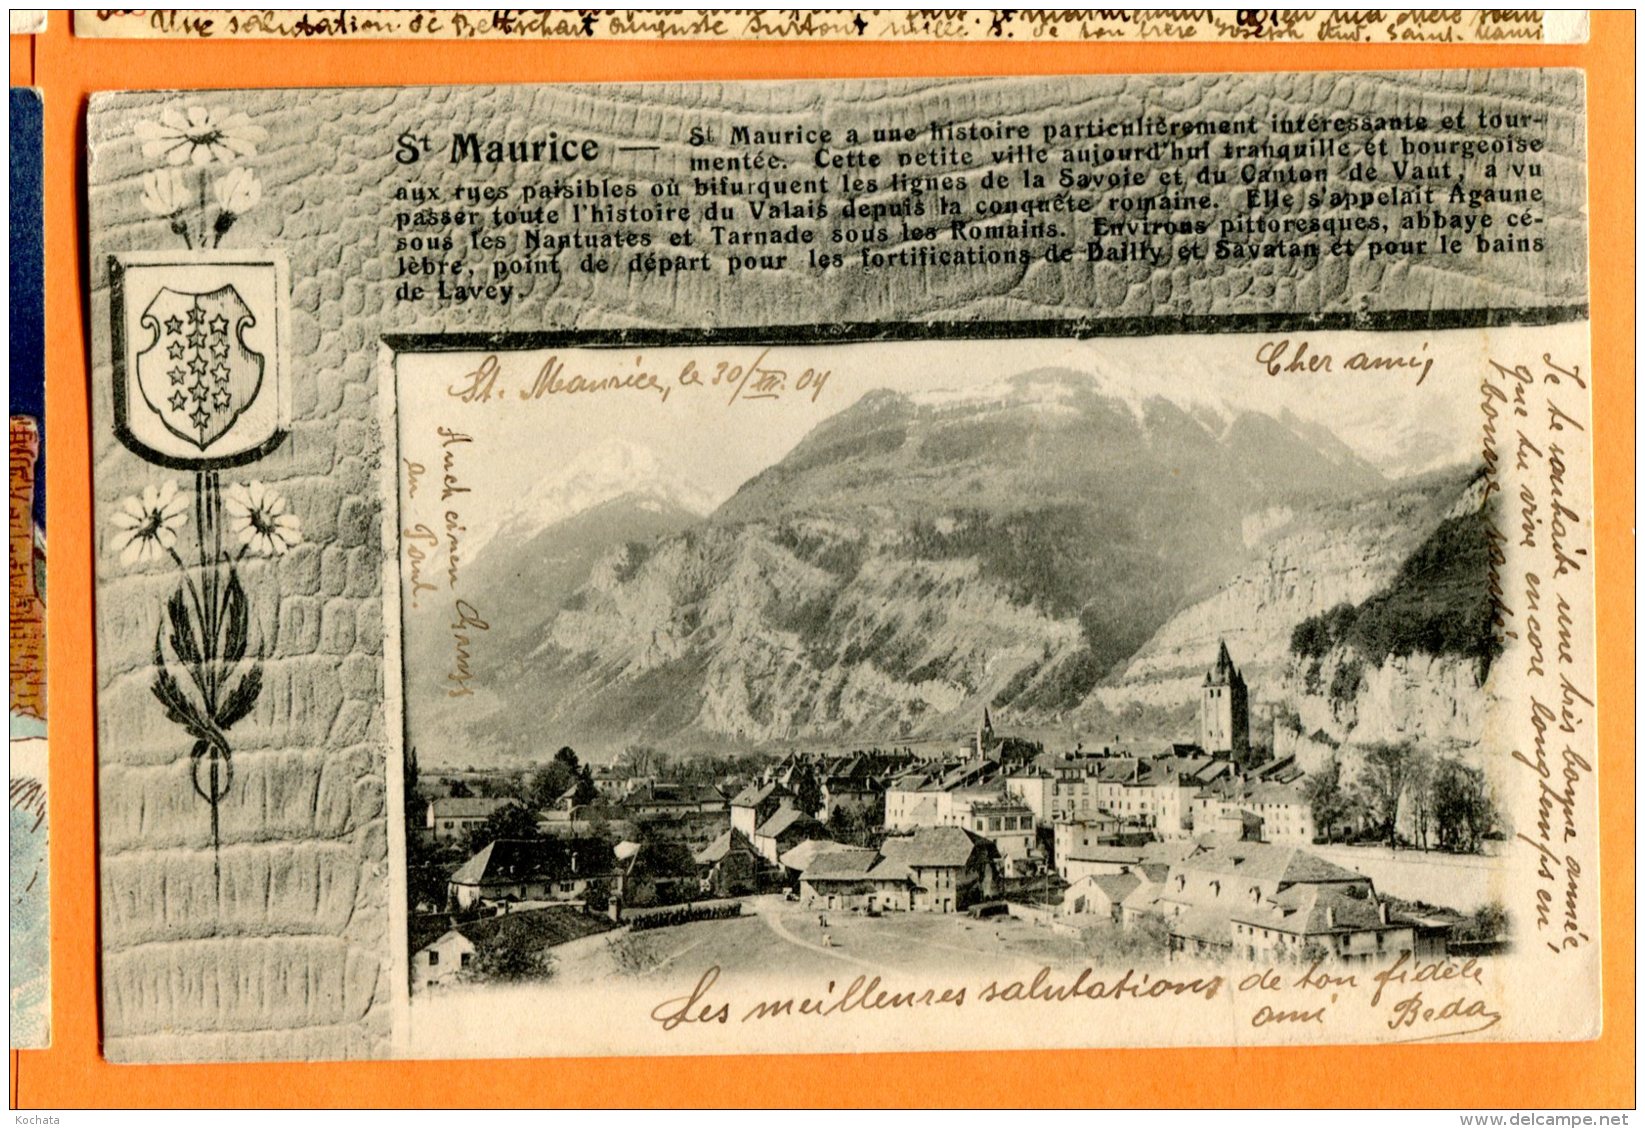 Une salutation de Bettschart Auguste surtout mille b. de ton frère Joseph
St Maurice — St Maurice a une histoire particulièrement intéressante et tour-
mentée. Cette petite ville aujourd'hui tranquille et bourgeoise
aux rues paisibles où bifurquent les lignes de la Savoie et du Canton de Vaut, a vu
passer toute l'histoire du Valais depuis la conquête romaine. Elle s'appelait Agaune
sous les Nantuates et Tarnade sous les Romains. Environs pittoresques, abbaye cé-
lèbre, point de départ pour les fortifications de Dailly et Savatan et pour le bains
de Lavey.
St. Maurice, le 30/XII. 04
Cher ami,
Je te souhaite une très bonne année
que tu vive encore longtemps en
bonne santé.
Auch einen Gruss
an Paul.
Les meilleures salutations de ton fidèle
ami Beda
Kochata
www.delcampe.net